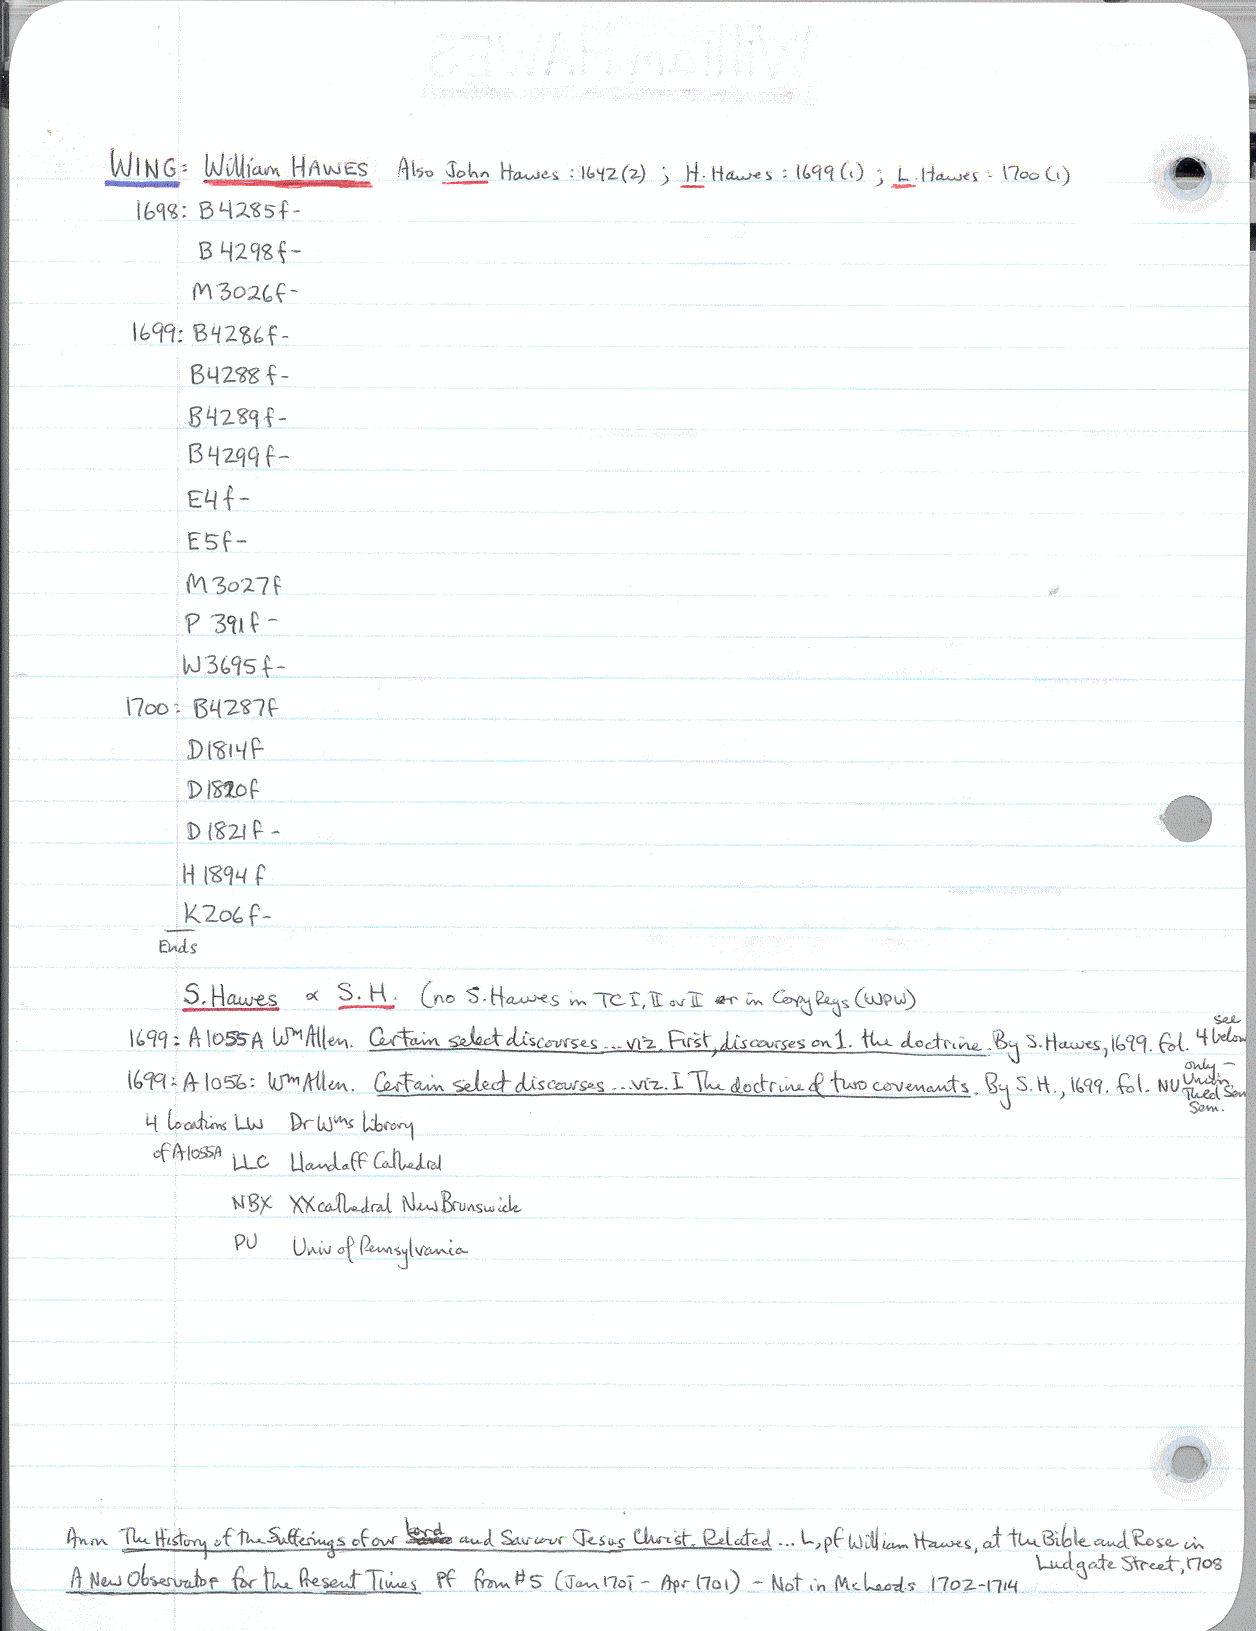 WING: William HAWES Also John Hawes: 1642(2); H. Hawes: 1699(1); L. Hawes: 1700(1)
1698: B4285f-
B4298f-
M3026f-
1699: B4286f-
B4288f-
B4289f-
B4299f-
E4f-
E5f-
M3027f
P 391f-
W3695f-
1700: B4287f
D1814f
D1820f
D1821f-
H1894f
K206f-
Ends
S. Hawes or S.H. (no S. Hawes in TC I, II or II or in Copy Regs (WPW)
1699: A1055A Wm Allen. Certain select discourses... viz. First, discourses on 1. the doctrine. By S. Hawes, 1699. fol. see 4 below
1699: A1056: Wm Allen. Certain select discourses... viz. I The doctrine of two covenants. By S.H., 1699. fol. NU only - Union Theol Sem
Sem.
4 locations LW Dr Wms Library
of A1055A LLC Llandaff Cathedral
NBX XXcathedral New Brunswick
PU Univ of Pennsylvania
Anon The History of the Sufferings of our Lord and Saviour Jesus Christ. Related... L, pf William Hawes, at the Bible and Rose in
Ludgate Street, 1708
A New Observator for the Present Times pf from #5 (Jan 1701 - Apr 1701) - Not in McLeods 1702-1714